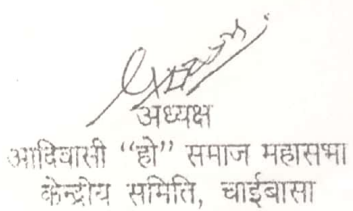 अध्यक्ष
आदिवासी “हो” समाज महासभा
केन्द्रीय समिति, चाईबासा